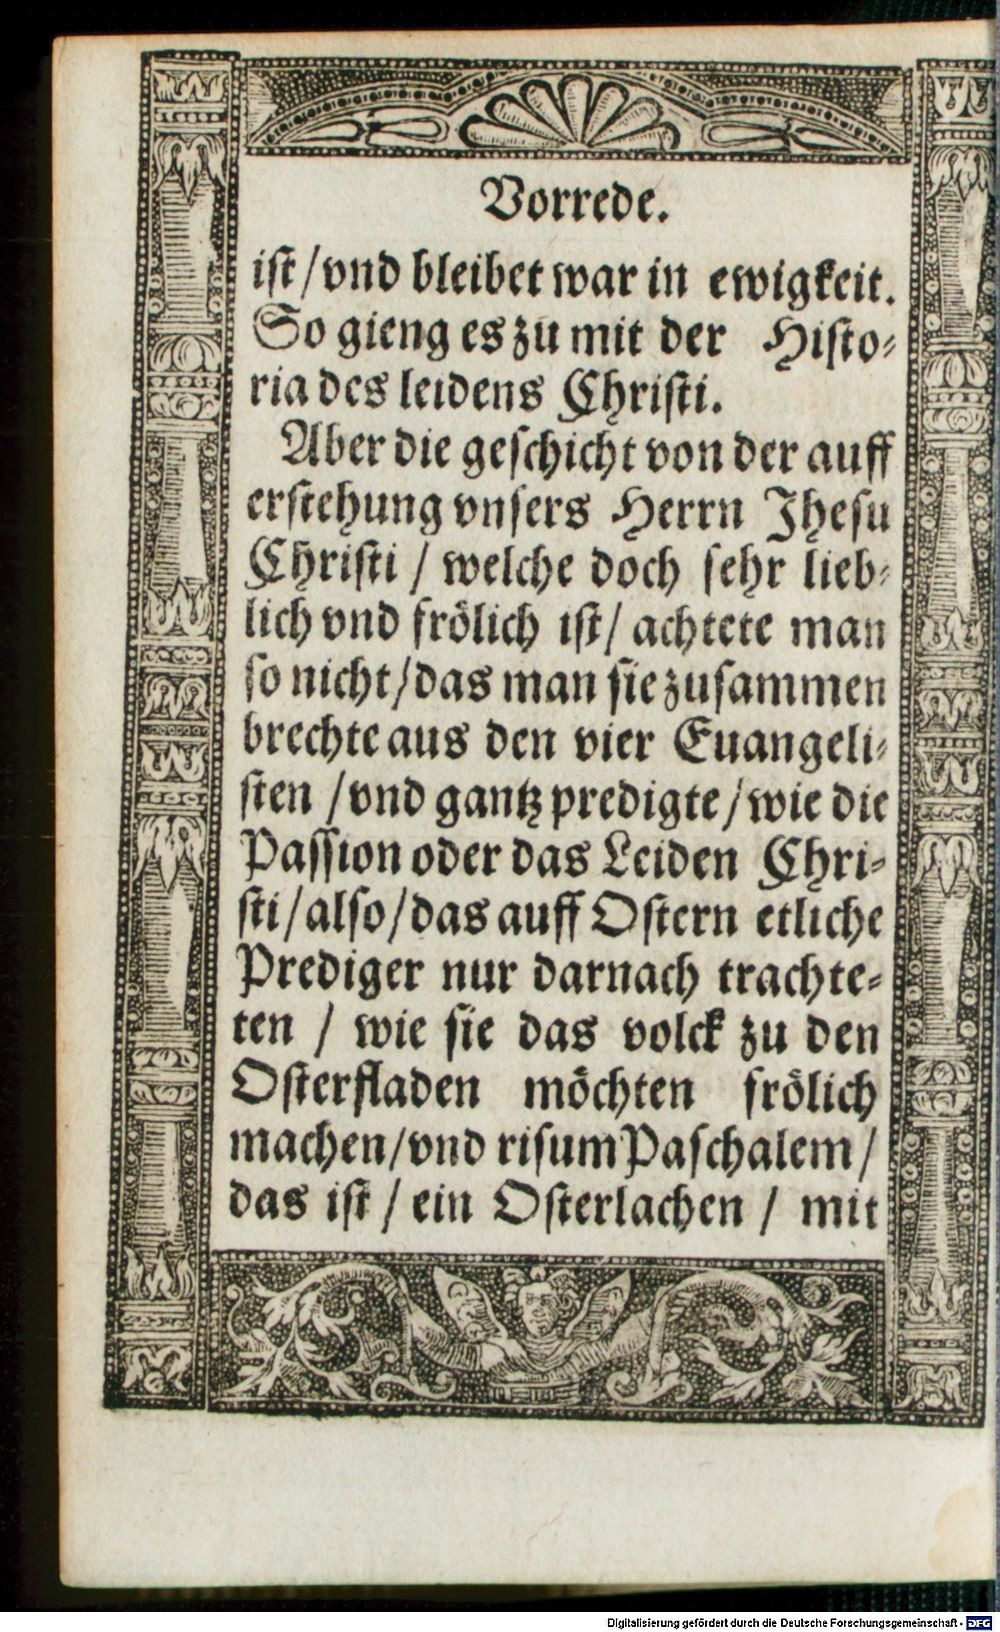 Vorrede.
ist / vnd bleibet war in ewigkeit.
So gieng es zu mit der Histo⸗
ria des leidens Christi.
Aber die geschicht von der auff
erstehung vnsers Herrn Jhesu
Christi / welche doch sehr lieb⸗
lich vnd frölich ist / achtete man
so nicht / das man sie zusammen
brechte aus den vier Euangeli⸗
sten / vnd gantz predigte / wie die
Passion oder das Leiden Chri⸗
sti / also / das auff Ostern etliche
Prediger nur darnach trachte⸗
ten / wie sie das volck zu den
Osterfladen möchten frölich
machen / vnd risum Paschalem /
das ist / ein Osterlachen / mit
Digitalisierung gefördert durch die Deutsche Forschungsgemeinschaft - DFG